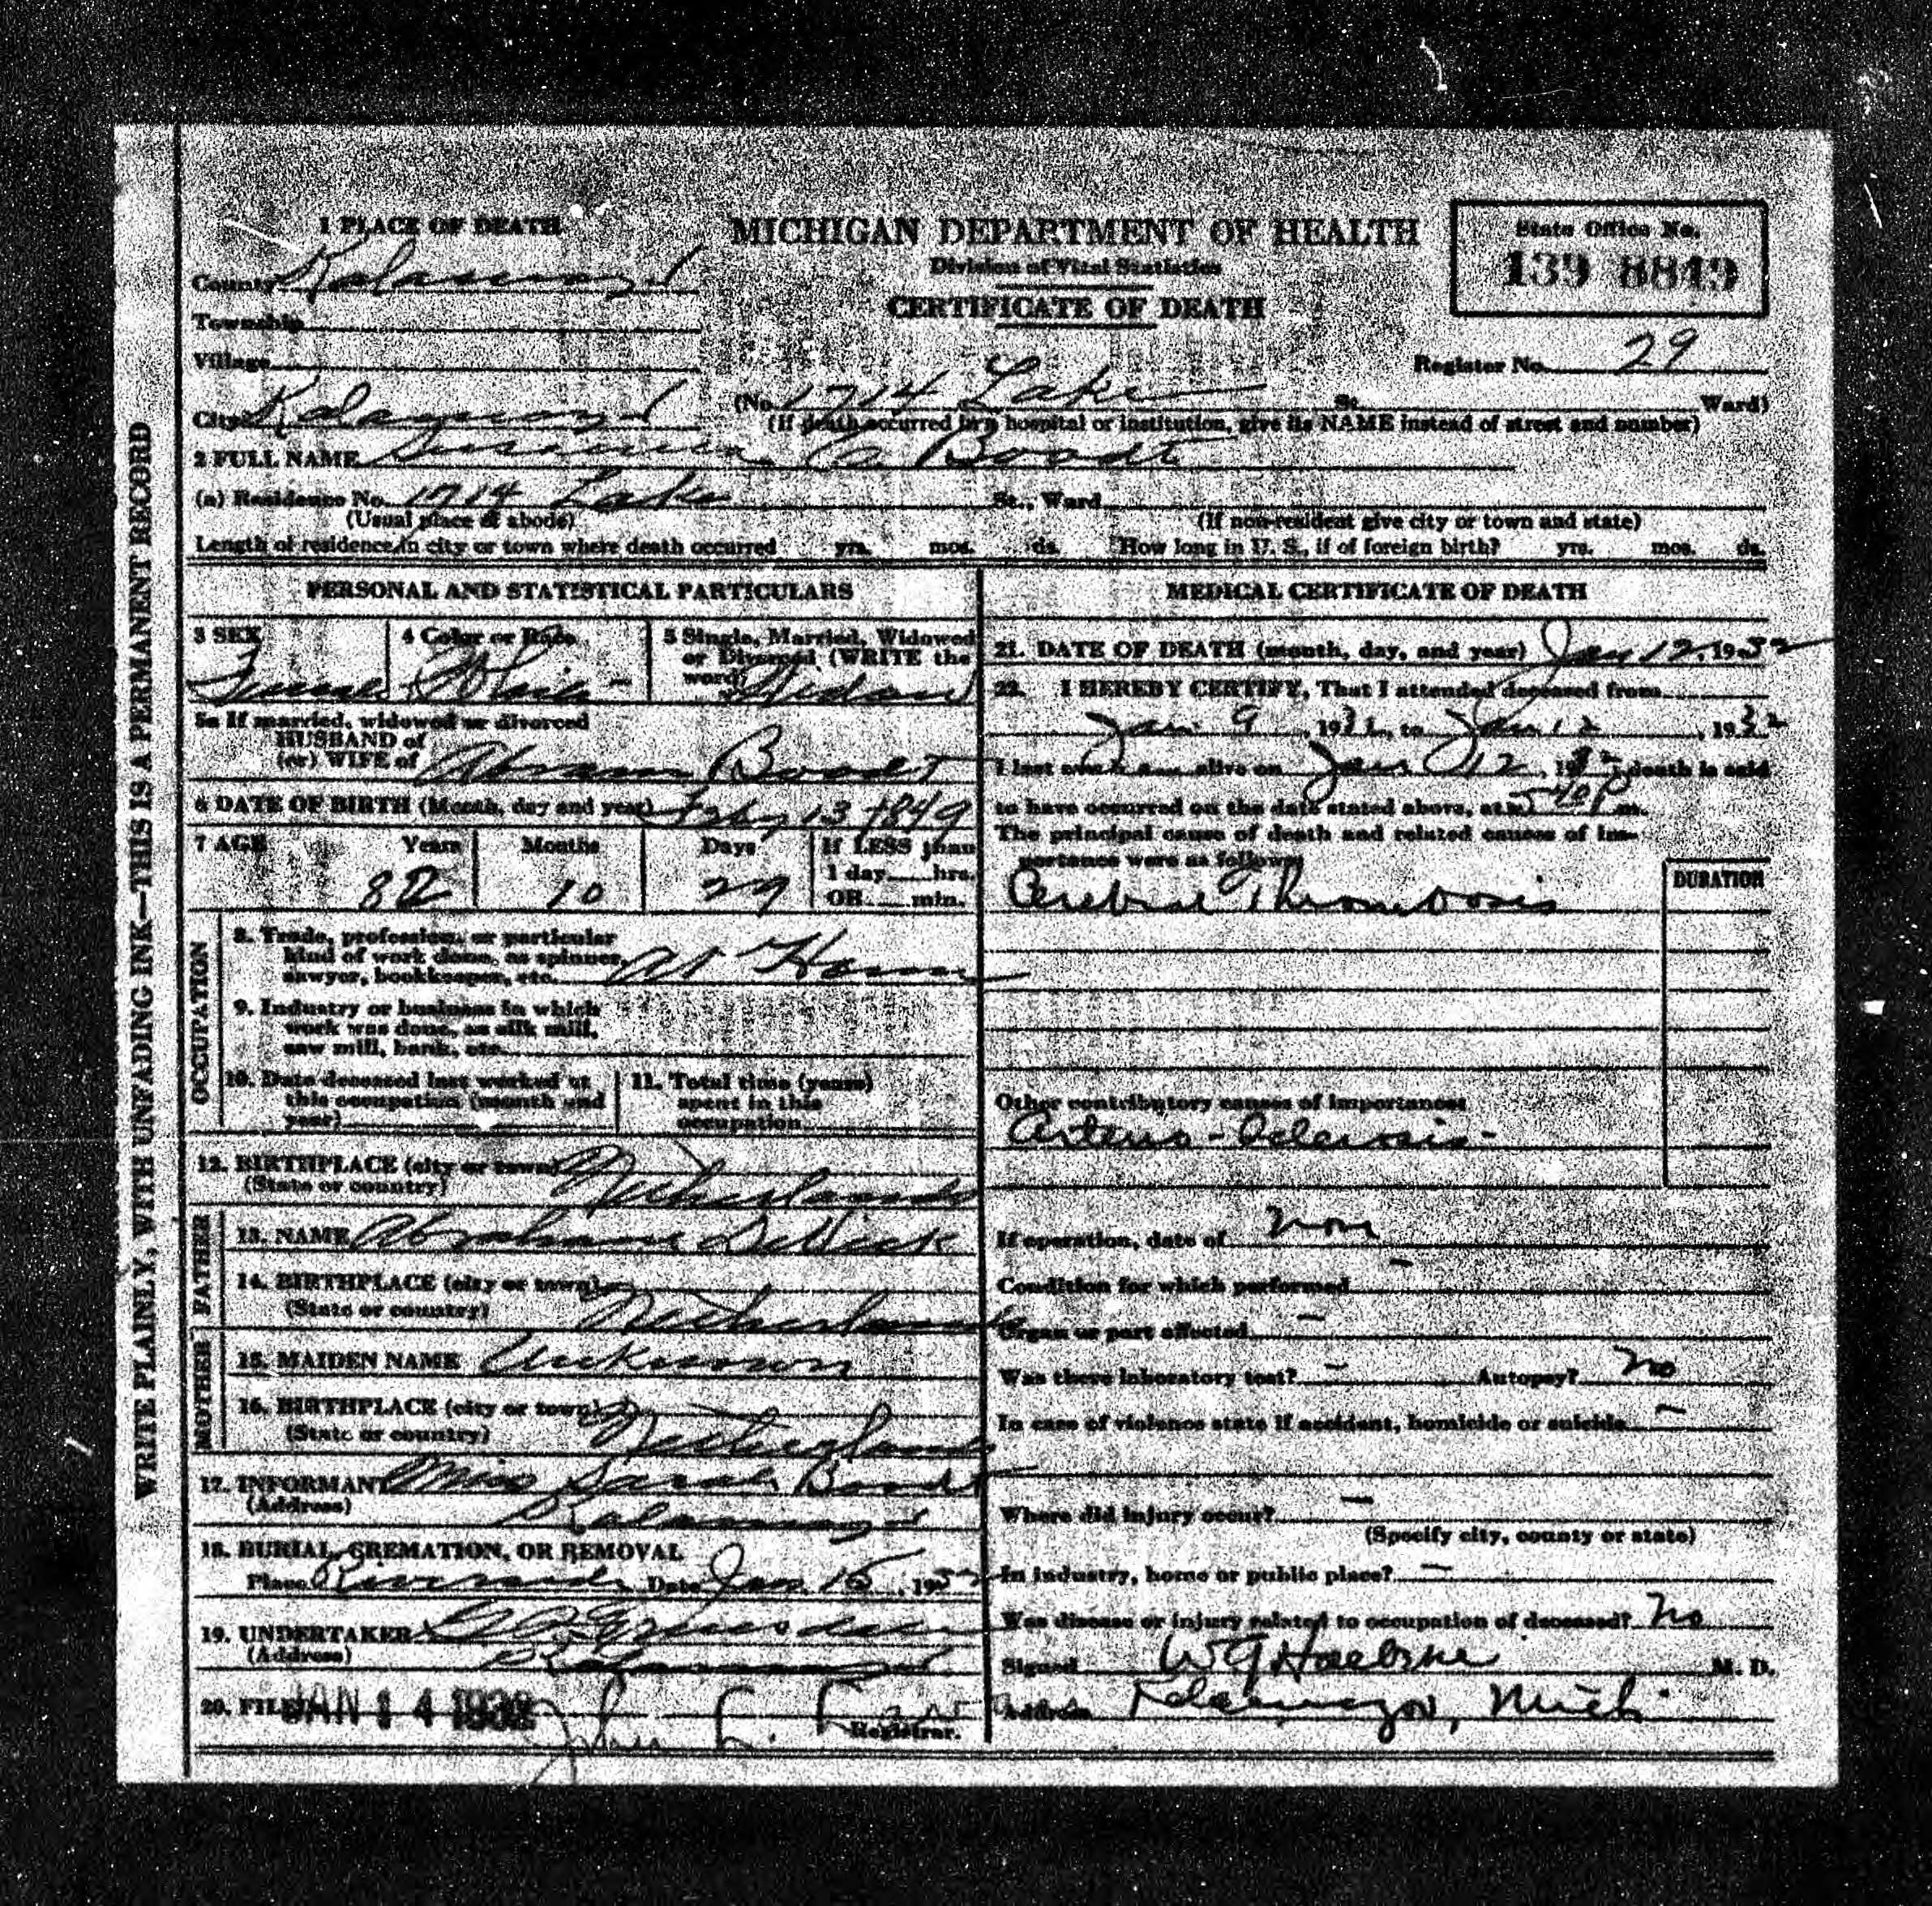 WRITE PLAINLY, WITH UNFADING INK—THIS IS A PERMANENT RECORD
1 PLACE OF DEATH
MICHIGAN DEPARTMENT OF HEALTH
Division of Vital Statistics
CERTIFICATE OF DEATH
State Office No.
139 8849
County Kalamazoo
Township
Village
Register No. 29
City Kalamazoo (No. 1714 Lake St. Ward)
(If death occurred in a hospital or institution, give its NAME instead of street and number)
2 FULL NAME A. Boodt
(a) Residence No. 1714 Lake St., Ward
(Usual place of abode) (If non-resident give city or town and state)
Length of residence in city or town where death occurred yrs. mos. ds. How long in U. S., if of foreign birth? yrs. mos. ds.
PERSONAL AND STATISTICAL PARTICULARS
3 SEX
Female
4 Color or Race
White
5 Single, Married, Widowed
or Divorced (WRITE the
word) Widow
5a If married, widowed or divorced
HUSBAND of
(or) WIFE of Abram Boodt
6 DATE OF BIRTH (Month, day and year) Feby 13 1849
7 AGE Years Months Days If LESS than
1 day hrs.
82 10 29 OR min.
OCCUPATION
8. Trade, profession, or particular
kind of work done, as spinner,
sawyer, bookkeeper, etc. At Home
9. Industry or business in which
work was done, as silk mill,
saw mill, bank, etc.
10. Date deceased last worked at
this occupation (month and
year)
11. Total time (years)
spent in this
occupation
12. BIRTHPLACE (city or town)
(State or country) Netherlands
FATHER
13. NAME Abraham
14. BIRTHPLACE (city or town)
(State or country) Netherlands
MOTHER
15. MAIDEN NAME Unknown
16. BIRTHPLACE (city or town)
(State or country) Netherlands
17. INFORMANT Miss Sarah Boodt
(Address) Kalamazoo
18. BURIAL, CREMATION, OR REMOVAL
Place Riverside Date Jan 15, 1932
19. UNDERTAKER
(Address) Kalamazoo
20. FILED JAN 14 1932
Registrar.
MEDICAL CERTIFICATE OF DEATH
21. DATE OF DEATH (month, day, and year) Jan 12, 1932
22. I HEREBY CERTIFY, That I attended deceased from
Jan. 9, 1932, to Jan 12, 1932
I last saw h alive on Jan. 12, 1932, death is said
to have occurred on the date stated above, at 5 40 P m.
The principal cause of death and related causes of im-
portance were as follows
DURATION
Cerebral Thrombosis
Other contributory causes of importance:
Arterio-Sclerosis-
If operation, date of non
Condition for which performed -
Organ or part affected -
Was there laboratory test? - Autopsy? no
In case of violence state if accident, homicide or suicide -
Where did injury occur? -
(Specify city, county or state)
In industry, home or public place? -
Was disease or injury related to occupation of deceased? No
Signed M. D.
Address Kalamazoo, Mich.